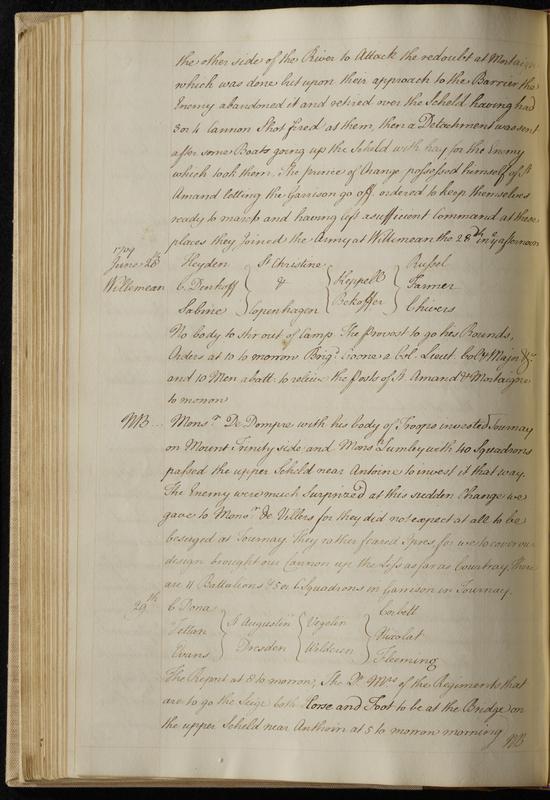 the other side of the River to Attack the redoubt at Mortain
which was done but upon their approach to the Barrier the
Enemy abandoned it and retired over the Scheld having had
3 or 4 Cannon Shot fired at them, then a Detachment was sent
after some Boats going up the Scheld with hay for the Enemy
which took them. The prince of Orange possessed himself of St
Amand letting the Garrison go off. ordered to keep themselves
ready to march and having left a sufficient Command at these
places they Joined the Army at Willemean the 28th in ye afternoon
1709
June 28th Heyden St Christine Keppell Russel
Willemean C. Denhoff & Bekoffer Farmer
Sabine Copenhagen Chivers
No body to stir out of Camp. The provost to go his Rounds,
Orders at 10 to morrow Brigr a Col. Lieut. Colo Major &c
and 10 Men a batt: to relieve the Posts of St Amand & Mortaigne
to morrow
NB... Monsr De Dompre with his body of Troops invested Tournay
on Mount Trinity side and Monsr Lumley with 40 Squadrons
passed the upper Scheld near Antoine to invest it that way.
The Enemy were much Surprized at this sudden Change we
gave to Monsr de Villers for they did not expect at all to be
besieged at Tournay. They rather feared Ipres for we to cover our
design brought our Cannon up the Liss as far as Courtray. There
are 11 Battalions & 5 or 6 Squadrons in Garrison in Tournay.
29th C Dona St Augustin Vegelin Corbett
Tettau Dresden Welderen Nicolat
Evans Fleeming
The Report at 8 to morrow; The Qr Mrs of the Regiments that
are to go the Seige both Horse and Foot to be at the Bridge on
the upper Scheld near Anthoin at 5 to morrow morning
NB